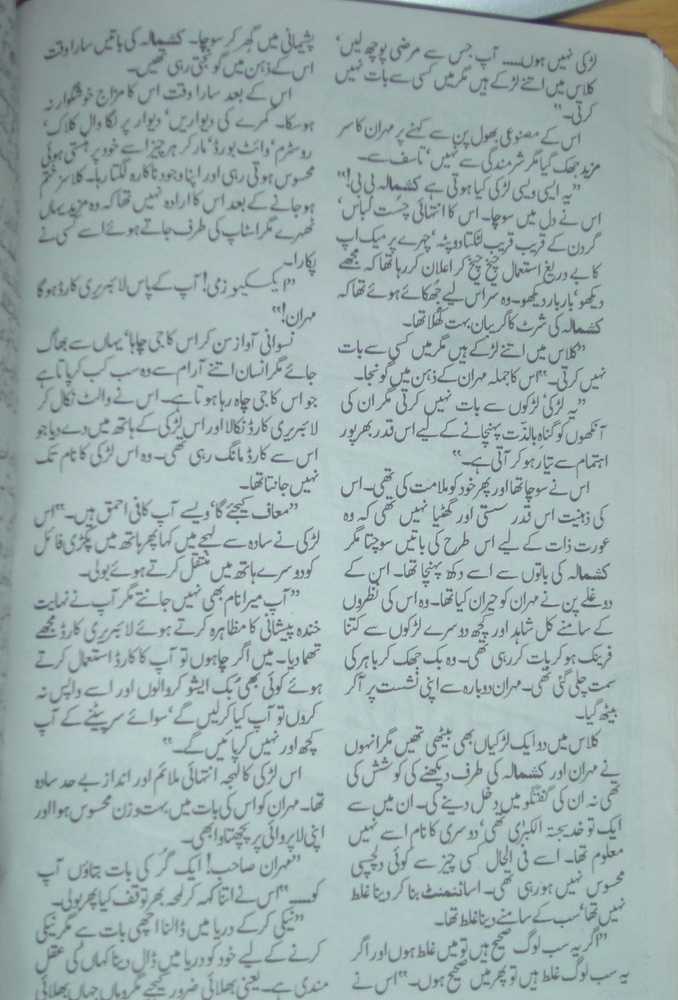 لڑکی نہیں ہوں..... آپ جس سے مرضی پوچھ لیں‘
کلاس میں اتنے لڑکے ہیں مگر میں کسی سے بات نہیں
کرتی۔‘‘
اس کے مصنوعی بھول پن سے کہنے پر مہران کا سر
مزید جھک گیا مگر شرمندگی سے نہیں‘ تاسف سے۔
’’یہ ایسی ویسی لڑکی کیا ہوتی ہے کشمالہ بی بی!‘‘
اس نے دل میں سوچا۔ اس کا انتہائی چست لباس‘
گردن کے قریب قریب لٹکتا دوپٹہ‘ چہرے پر میک اپ
کا بے دریغ استعمال چیخ چیخ کر اعلان کر رہا تھا کہ مجھے
دیکھو‘ بار بار دیکھو۔ وہ سر اس لیے جھکائے ہوئے تھا کہ
کشمالہ کی شرٹ کا گریبان بہت کھلا تھا۔
’’کلاس میں اتنے لڑکے ہیں مگر میں کسی سے بات
نہیں کرتی۔‘‘ اس کا جملہ مہران کے ذہن میں گونجا۔
’’یہ لڑکی‘ لڑکوں سے بات نہیں کرتی مگر ان کی
آنکھوں کو گناہ بالذت پہنچانے کے لیے اس قدر بھرپور
اہتمام سے تیار ہو کر آتی ہے۔‘‘
اس نے سوچا تھا اور پھر خود کو ملامت کی تھی۔ اس
کی ذہنیت اس قدر سستی اور گھٹیا نہیں تھی کہ وہ
عورت ذات کے لیے اس طرح کی باتیں سوچتا مگر
کشمالہ کی باتوں سے اسے دکھ پہنچا تھا۔ اس کے
دوغلے پن نے مہران کو حیران کیا تھا۔ وہ اس کی نظروں
کے سامنے کل شاہد اور کچھ دوسرے لڑکوں سے کتنا
فرینک ہو کر بات کر رہی تھی۔ وہ بک جھک کر باہر کی
سمت چلی گئی تھی۔ مہران دوبارہ سے اپنی نشست پر آ کر
بیٹھ گیا۔
کلاس میں دو ایک لڑکیاں بھی بیٹھی تھیں مگر انہوں
نے مہران اور کشمالہ کی طرف دیکھنے کی کوشش کی
تھی نہ ان کی گفتگو میں دخل دینے کی۔ ان میں سے
ایک تو خدیجۃ الکبریٰ تھی‘ دوسری کا نام اسے نہیں
معلوم تھا۔ اسے فی الحال کسی چیز سے کوئی دلچسپی
محسوس نہیں ہو رہی تھی۔ اسائنمنٹ بنا کر دینا غلط
نہیں تھا‘ سب کے سامنے دینا غلط تھا۔
’’اگر یہ سب لوگ صحیح ہیں تو میں غلط ہوں اور اگر
یہ سب لوگ غلط ہیں تو پھر میں صحیح ہوں۔‘‘ اس نے
پشیمانی میں گھر کر سوچا۔ کشمالہ کی باتیں سارا وقت
اس کے ذہن میں گونجتی رہی تھیں۔
اس کے بعد سارا وقت اس کا مزاج خوشگوار نہ
ہوسکا۔ کمرے کی دیواریں‘ دیوار پر لگا وال کلاک‘
روسٹرم‘ وائٹ بورڈ‘ مارکر ہر چیز اسے خود پر ہنستی ہوئی
محسوس ہوتی رہی اور اپنا وجود ناکارہ لگتا رہا۔ کلاسز ختم
ہو جانے کے بعد اس کا ارادہ نہیں تھا کہ وہ مزید یہاں
ٹھہرے مگر اسٹاپ کی طرف جاتے ہوئے اسے کسی نے
پکارا۔
’’ایکسکیوزمی! آپ کے پاس لائبریری کارڈ ہوگا
مہران!‘‘
نسوانی آواز سن کر اس کا جی چاہا‘ یہاں سے بھاگ
جائے مگر انسان اتنے آرام سے وہ سب کب کر پاتا ہے
جو اس کا جی چاہ رہا ہوتا ہے۔ اس نے والٹ نکال کر
لائبریری کارڈ نکالا اور اس لڑکی کے ہاتھ میں دے دیا جو
اس سے کارڈ مانگ رہی تھی۔ وہ اس لڑکی کا نام تک
نہیں جانتا تھا۔
’’معاف کیجئے گا‘ ویسے آپ کافی احمق ہیں۔‘‘ اس
لڑکی نے سادہ سے لہجے میں کہا پھر ہاتھ میں پکڑی فائل
کو دوسرے ہاتھ میں منتقل کرتے ہوئے بولی۔
’’آپ میرا نام بھی نہیں جانتے مگر آپ نے نہایت
خندہ پیشانی کا مظاہرہ کرتے ہوئے لائبریری کارڈ مجھے
تھما دیا۔ میں اگر چاہوں تو آپ کا کارڈ استعمال کرتے
ہوئے کوئی بھی بک ایشو کروالوں اور اسے واپس نہ
کروں تو آپ کیا کرلیں گے‘ سوائے سر پیٹنے کے آپ
کچھ اور نہیں کر پائیں گے۔‘‘
اس لڑکی کا لہجہ انتہائی ملائم اور انداز بے حد سادہ
تھا۔ مہران کو اس کی بات میں بہت وزن محسوس ہوا اور
اپنی لاپروائی پر پچھتاوا بھی۔
’’مہران صاحب! ایک گر کی بات بتاؤں آپ
کو.....‘‘ اس نے اتنا کہہ کر لمحہ بھر توقف کیا پھر بولی۔
’’نیکی کر کے دریا میں ڈالنا اچھی بات ہے مگر نیکی
کرنے کے لیے خود کو دریا میں ڈال دینا کہاں کی عقل
مندی ہے۔ یعنی بھلائی ضرور کیجئے مگر وہاں جہاں بھلائی